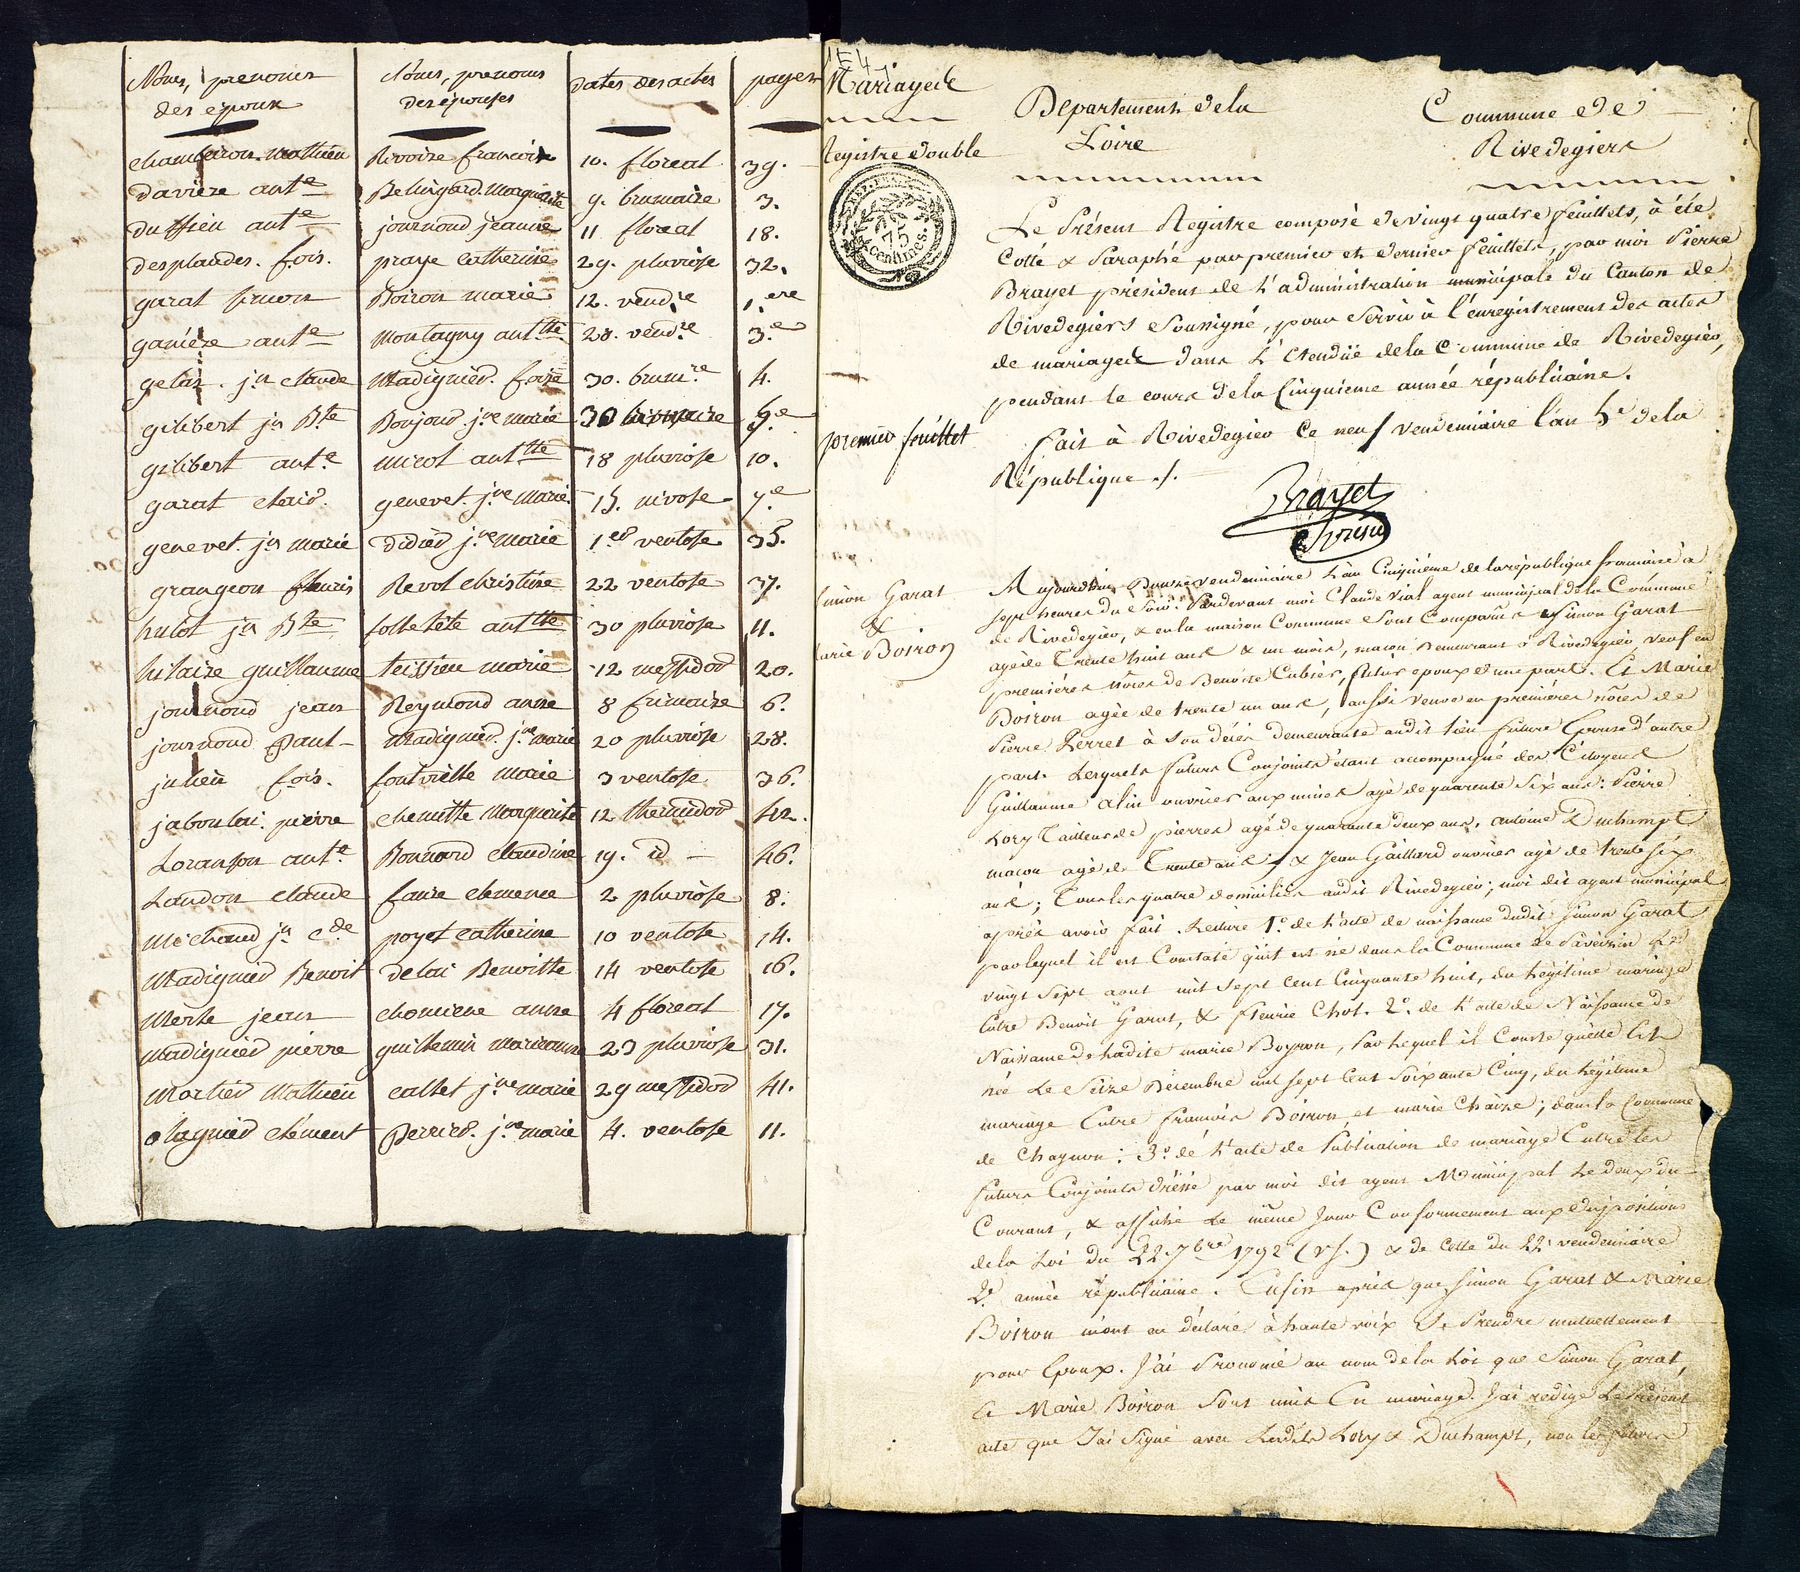 Noms, prenoms des epoux
Noms, prenoms des epouses
dates des actes
pages
chambeiron. Mathieu Rivoire francoise 10. floreal 39.
davieze ante Belingard. Marguerite 9. brumaire 3.
duffieu ante journoud jeanne 11 floreal 18.
desplandes. fois. praye catherine 29. pluviose 32.
garat simon Boiron marie 12. vendre 1.ere
ganiére ante Montagny antte 28. vendre 3.e
gelas. jn claude Madignier. foise 30. brumre 4.
gilibert jn Bte Boujoud jne marie 30 brumaire 5.e
gilibert ante. micol antte 18 pluviose 10.
garat claud. genevet. jne marie. 15. nivose 7.e
genevet. jn marie didier jne marie 1er ventose 35.
grangeon fleuris Revol christine 22 ventose 37.
hulot jn Bte folletête antte 30 pluviose 11.
hilaire guillaume teissieu marie 12 messidor 20.
journoud jean Reymond anne 8 frimaire 6.
journoud paul Madignier. jne marie 20 pluviose 28.
julien fois. fontvielle marie 3 ventose 36.
jaboulei. pierre chemitte Marguerite 12 thermidor 42.
Loranson ante. Bonnard claudine 19. id 46.
Landon claude faure clemence 2 pluviose 8.
Michoud jn cde poyet catherine 10 ventose 14.
Madignier Benoit delai Benoitte 14 ventose 16.
Merle jean chomiene anne 4 floreal 17.
Madignier pierre guillemin marieanne 23 pluviose 31.
Mortier Mathieu callet jne marie 29 messidor 41.
olagnier clément Perrier. jne marie 4. ventose 11.
1E4
Mariages
Departement de la
Commune de
Registre double
Loire
Rivedegiers
75 centimes.
Le Présent Registre composé de vingt quatre feuillets, à été
Cotté & Paraphé par premier et dernier feuillets, par moi Pierre
Brayet président de l'administration municipale du Canton de
Rivedegiers soussigné, pour servir à l'enregistrement des actes
de mariages dans l'étendüe de la Commune de Rivedegier,
pendant le cours de la Cinquieme année républicaine.
premier feuillet
fait à Rivedegier ce neuf vendemiaire l'an 5e de la
République ./.
Brayet
Simon Garat
&
Marie Boiron
Aujourdhui Douze vendemiaire L'an Cinquième de la république francaise à
sept heures du Soir. Pardevant moi Claude Vial agent municipal de la Commune
de Rivedegier, & en la maison Commune Sont Comparus Simon Garat
agé de Trente huit ans & un mois, macon demeurant à Rivedegier, veuf en
premiéres nôces de Benoite Cubier, futur epoux d'une part. Et Marie
Boiron agée de trente un ans, aussi veuve en premiéres nôces de
Pierre Perret à son décés demeurante audit lieu future Epouse d'autre
part. Lesquels futurs Conjoints étant accompagné des Citoyens
Guillaume Alin ouvrier aux mines agé de quarente Six ans: Pierre
Lory Tailleur de pierres agé de quarante deux ans, antoine Duchampt
macon agé de Trente ans, & Jean Gaillard ouvrier agé de trente six
ans; Tous les quatre domiciliés audit Rivedegier; moi dit agent municipal
aprés avoir fait Lecture 1º. de l'acte de naissance dudit Simon Garat
par lequel il est Constaté qu'il est né dans la Commune de Savéssin Le
vingt sept aout mil sept cent Cinquante huit, du légitime mariage
Entre Benoit Garat, & fleurie Chol. 2º. de l'acte de Naissance de
Naissance de Ladite marie Boyron, Par Lequel il Conste quelle Est
née Le Seize Décembre mil sept Cent Soixante Cinq, du légitime
mariage Entre francois Boiron, et marie Chaize; dans la Commune
de Chagnon: 3º. de l'acte de Publication de mariage Entre les
futurs Conjoints dréssé par moi dit agent Municipal Le deux du
Courant, & affiché Le même Jour Conformement aux dispositions
de la Loi du 22. 7bre 1792 (vs.) & de Celle du 22 vendemiaire
2e année républicaine. Enfin aprés que Simon Garat & Marie
Boiron m'ont eu déclaré à haute voix Se Prendre mutuellement
pour Epoux. J'ai Prononcé au nom de la Loi que Simon Garat,
Et Marie Boiron Sont unis En mariage. J'ai redigé Le Présent
acte que J'ai Signé avec Lesdits Lory & Duchampt, non les futurs